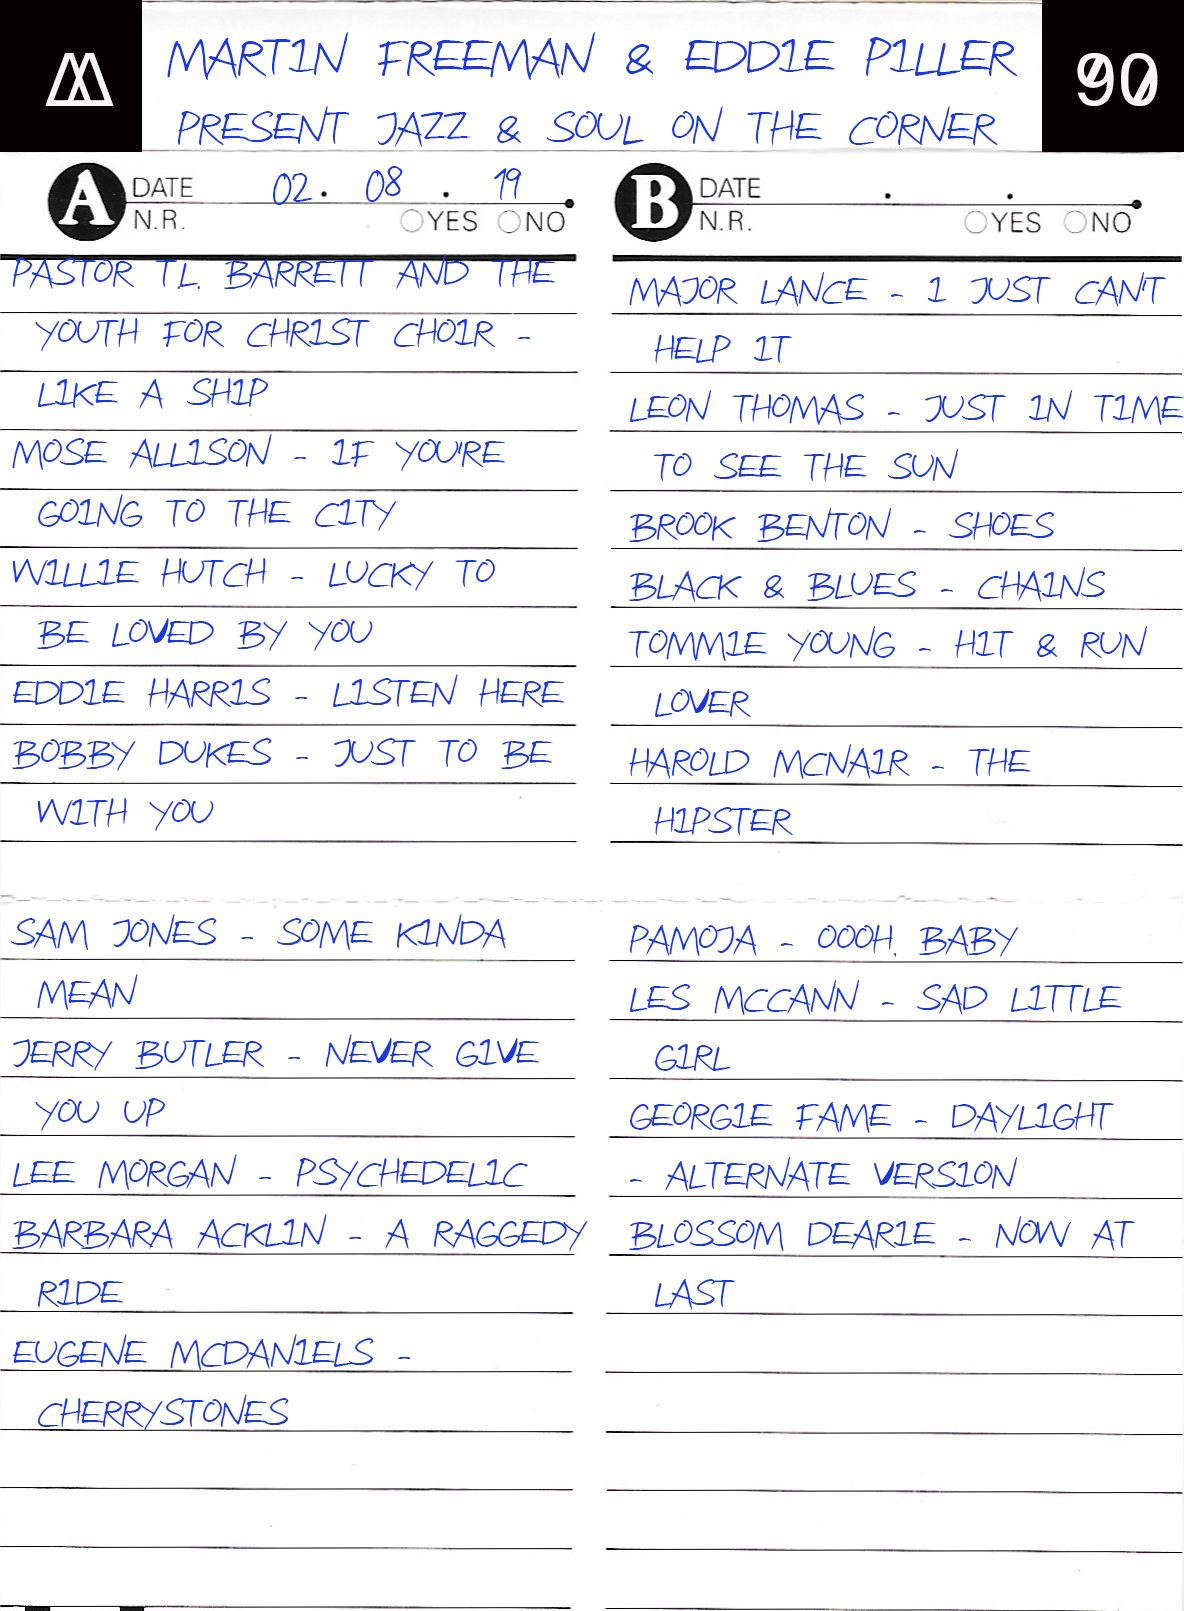 MARTIN FREEMAN & EDDIE PILLER
PRESENT JAZZ & SOUL ON THE CORNER
90
A DATE 02. 08 . 19
N.R. YES NO
PASTOR T.L. BARRETT AND THE
YOUTH FOR CHRIST CHOIR -
LIKE A SHIP
MOSE ALLISON - IF YOU'RE
GOING TO THE CITY
WILLIE HUTCH - LUCKY TO
BE LOVED BY YOU
EDDIE HARRIS - LISTEN HERE
BOBBY DUKES - JUST TO BE
WITH YOU
SAM JONES - SOME KINDA
MEAN
JERRY BUTLER - NEVER GIVE
YOU UP
LEE MORGAN - PSYCHEDELIC
BARBARA ACKLIN - A RAGGEDY
RIDE
EUGENE MCDANIELS -
CHERRYSTONES
B DATE . .
N.R. YES NO
MAJOR LANCE - I JUST CAN'T
HELP IT
LEON THOMAS - JUST IN TIME
TO SEE THE SUN
BROOK BENTON - SHOES
BLACK & BLUES - CHAINS
TOMMIE YOUNG - HIT & RUN
LOVER
HAROLD MCNAIR - THE
HIPSTER
PAMOJA - OOOH, BABY
LES MCCANN - SAD LITTLE
GIRL
GEORGIE FAME - DAYLIGHT
- ALTERNATE VERSION
BLOSSOM DEARIE - NOW AT
LAST